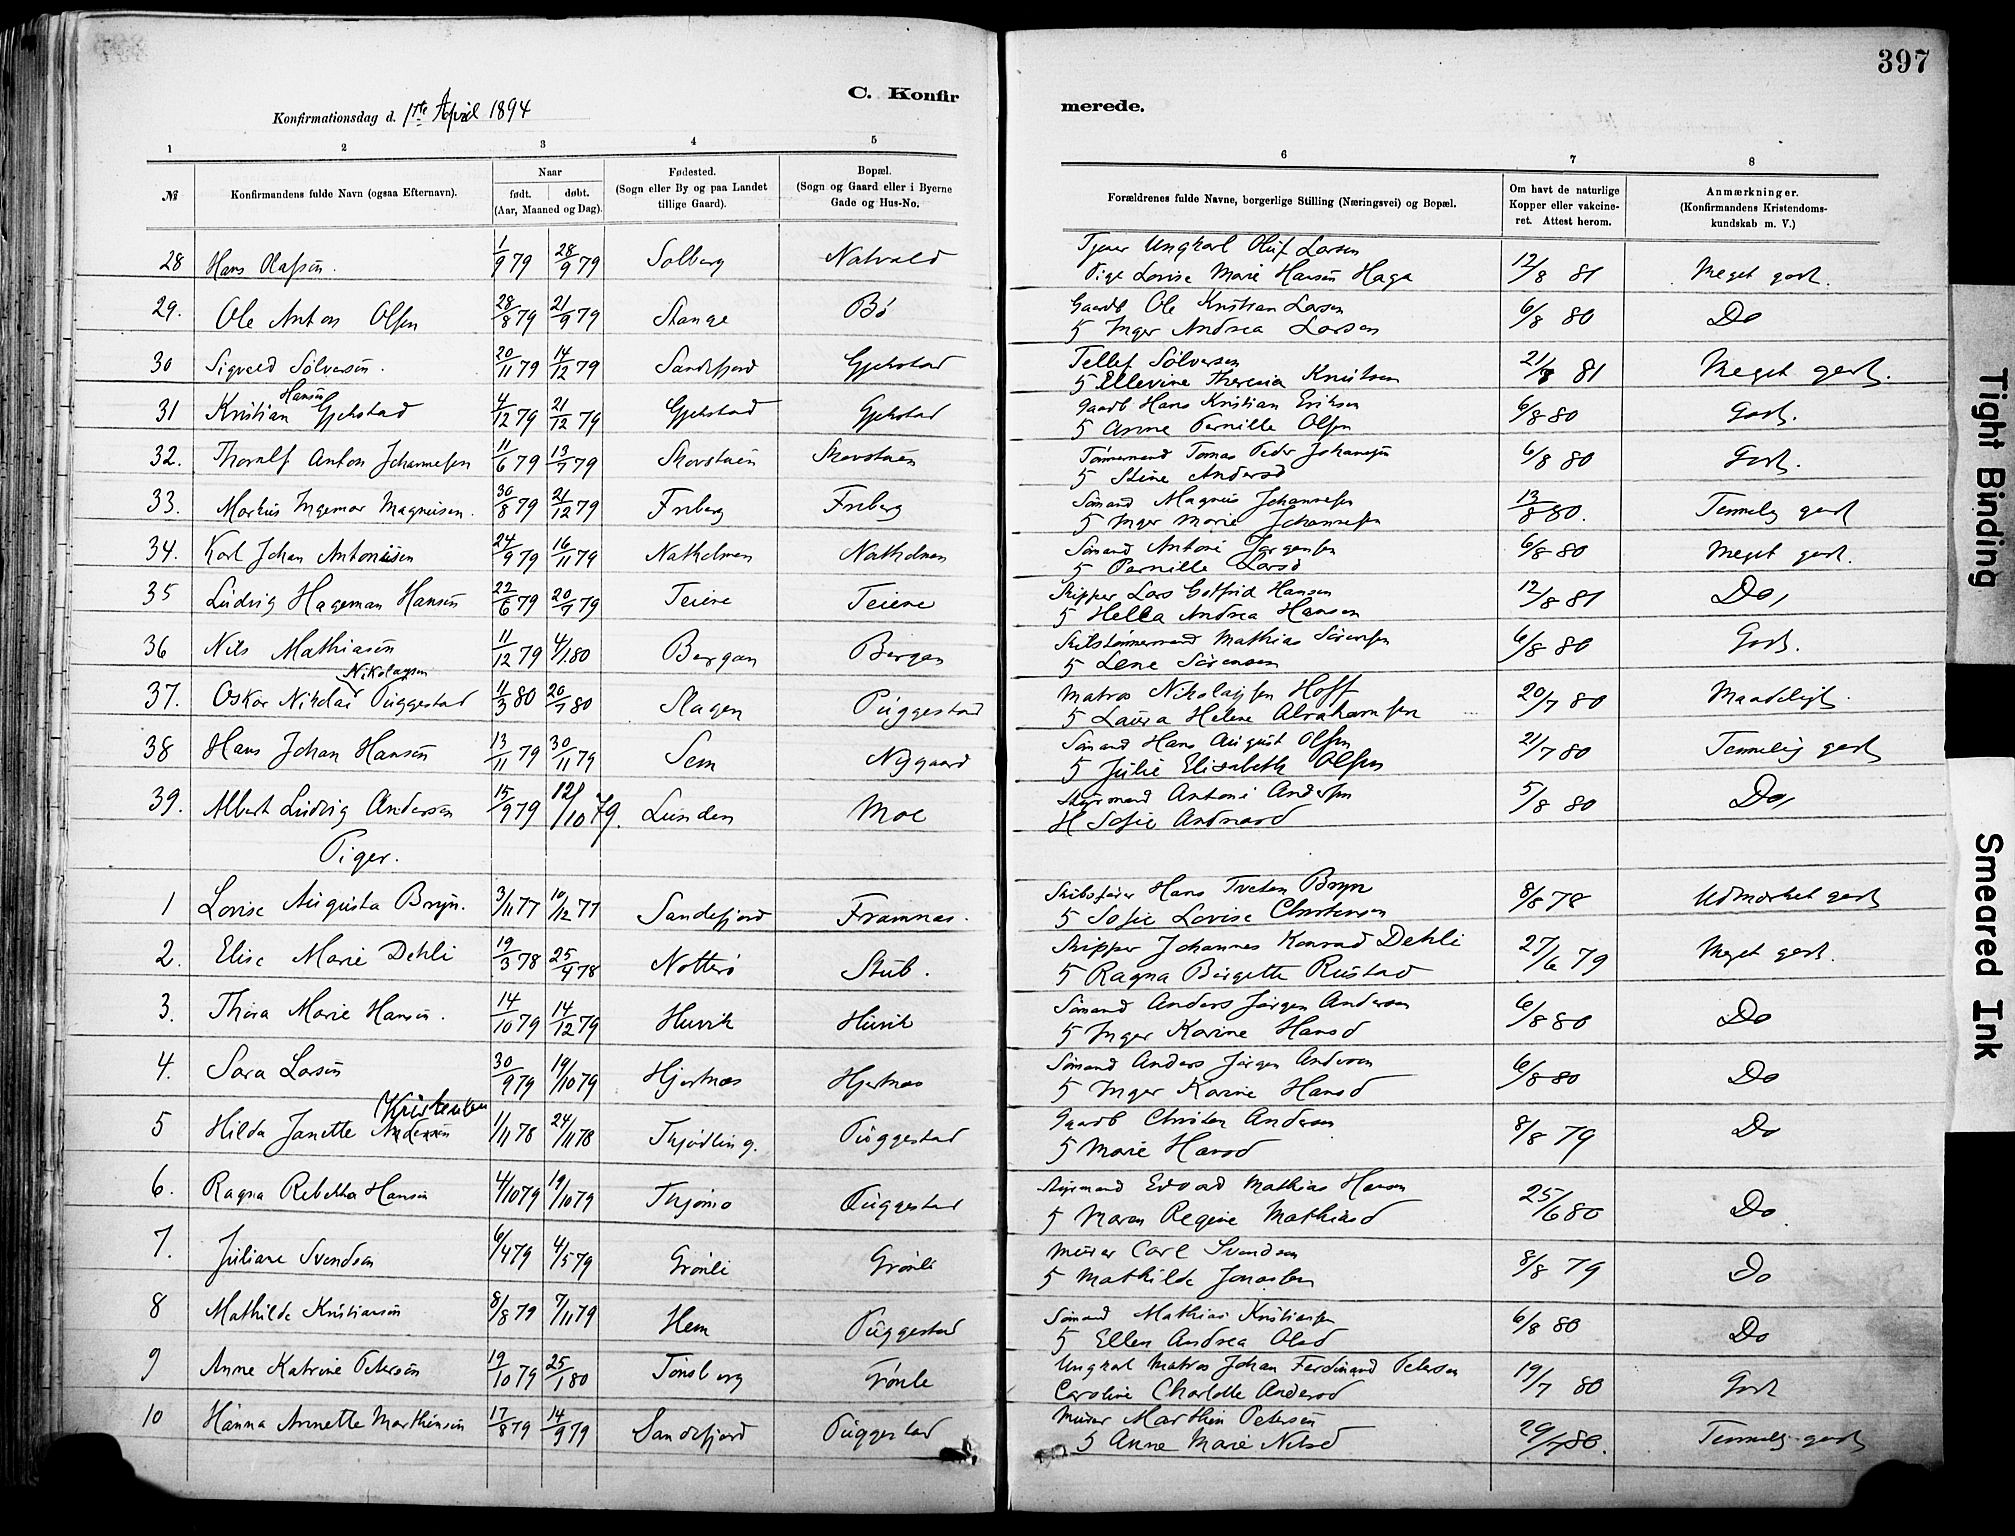 397
C. Konfirmerede.
Konfirmationsdag d. 1ste April 1894
1 2 3 4 5 6 7 8
№ Konfirmandens fulde Navn (ogsaa Efternavn). Naar født. døbt. (Aar, Maaned og Dag). Fødested. (Sogn eller By og paa Landet tillige Gaard). Bopæl. (Sogn og Gaard eller i Byerne Gade og Hus-No. Forældrenes fulde Navne, borgerlige Stilling (Næringsvei) og Bopæl. Om havt de naturlige Kopper eller vakcineret. Attest herom. Anmærkninger. (Konfirmandens Kristendomskundskab m. V.)
28 Hans Olafsen. 1/9 79 28/9 79 Solberg Natvald Ungkarl Oluf Larsen
Pige Lovise Marie Hansen Haga 12/8 81 Meget godt.
29. Ole Anton Olsen 28/8 79 21/9 79 Stange Bö Gaardb Ole Kristian Larsen
5 Inger Andrea Larsen 6/8 80 Do
30 Sigvald Sölvesen. 20/11 79 14/12 79 Sandefjord Gjekstad Tellef Sölvesen
5 Ellevine Theresia Knutsen 81 Meget godt.
31 Kristian Hansen Gjekstad 4/12 79 21/12 79 Gjekstad Gjekstad Gaardb Hans Kristian Eriksen
5 Anne Pernille Olsen 6/8 80 Godt.
32. Thoralf Anton Johannesen 11/6 79 13/7 79 Skovstuen Skovstuen Tømmermand Tomas Peder Johannesen
5 Stine Andersd 6/8 80 Godt.
33. Markus Ingemar Magnusen. 30/8 79 21/12 79 Friberg Friberg Sömand Magnus Johannesen
5 Inger Marie Johannesen 13/8 80. Temmelig godt
34. Karl Johan Antonisen 24/9 79 16/11 79 Natholmen Natholmen Sömand Antoni Jörgensen
5 Pernille Larsd 6/8 80 Meget godt.
35 Ludvig Hageman Hansen 22/6 79 20/7 79 Teiene Teiene Skipper Lars Gotfrid Hansen
5 Hella Andrea Hansen 12/8 81 Do,
36 Nils Mathiasen 11/12 79 4/1 80 Bergan Bergan Skibstömmermand Mathias Sörensen
5 Lene Sörensen 6/8 80 Godt.
37. Oskar Nikolai Nikolaysen Puggestad 11/3 80 80 Slagen Puggestad Matros Nikolaysen Hoff
5 Laura Helene Abrahamsen 20/7 80 Maadeligt.
38 Hans Johan Hansen 13/11 79 30/11 79 Sem Nygaard Sömand Hans August Olsen
5 Julie Elisabeth Olsen 21/7 80 Temmelig godt
39. Albert Ludvig Andersen 15/9 79 12/10 79. Lunden Moe Styrmand Antoni Andersen
H Sofie 5/8 80 Do,
Piger.
1 Lovise Augusta Bryn. 3/11 77 10/12 77 Sandefjord Framnæs. Skibsfører Hans Tveten Bryn
5 Sofie Lovise Christensen 8/8 78 Udmærket godt
2. Elise Marie Dehli 19/3 78 25/4 78 Nötterö Stub. Skipper Johannes Konrad Dehli
5 Ragna Birgette Rustad 27/6 79 Meget godt.
3. Thora Marie Hansen. 14/10 79 14/12 79 Huvik Huvik Sömand Anders Jörgen Andersen
5 Inger Karine Hansd 6/8 80 Do
4. Sara Larsen 30/9 79 19/10 79 Hjertnæs Hjertnæs Sömand Anders Jörgen Andersen
5 Inger Karine Hansd 6/8 80 Do
5 Hilda Janette Andersen Kristensen 1/11 78 24/11 78 Thjödling. Puggestad Gaardb Christen Andersen
5 Marie Hansd 8/8 79 Do
6. Ragna Rebekka Hansen 4/10 79 19/10 79 Thjömö Puggestad Styrmand Edvard Mathias Hansen
5 Maren Regine Mathiasd 25/6 80 Do
7. Juliane Svendsen 6/4 79 4/5 79 Grönli Grönli Murer Carl Svendsen
5 Mathilde Jonassen 8/8 79 Do
8 Mathilde Kristiansen 8/8 79 7/11 79 Hem Puggestad Sömand Mathias Kristiansen
5 Ellen Andrea Olsd 6/8 80 Do
9 Anne Katrine Petersen 19/10 79 25/1 80 Tönsberg Grönli Ungkarl Matros Johan Ferdinand Petersen
Caroline Charlotte Andersd 19/7 80 Godt
10 Hanna Annette Marthinsen 17/8 79 14/9 79 Sandefjord Puggestad Murer Marthin Petersen
5 Anne Marie Nilsd 29/7 80. Temmelig godt
Tight Binding
Smeared Ink